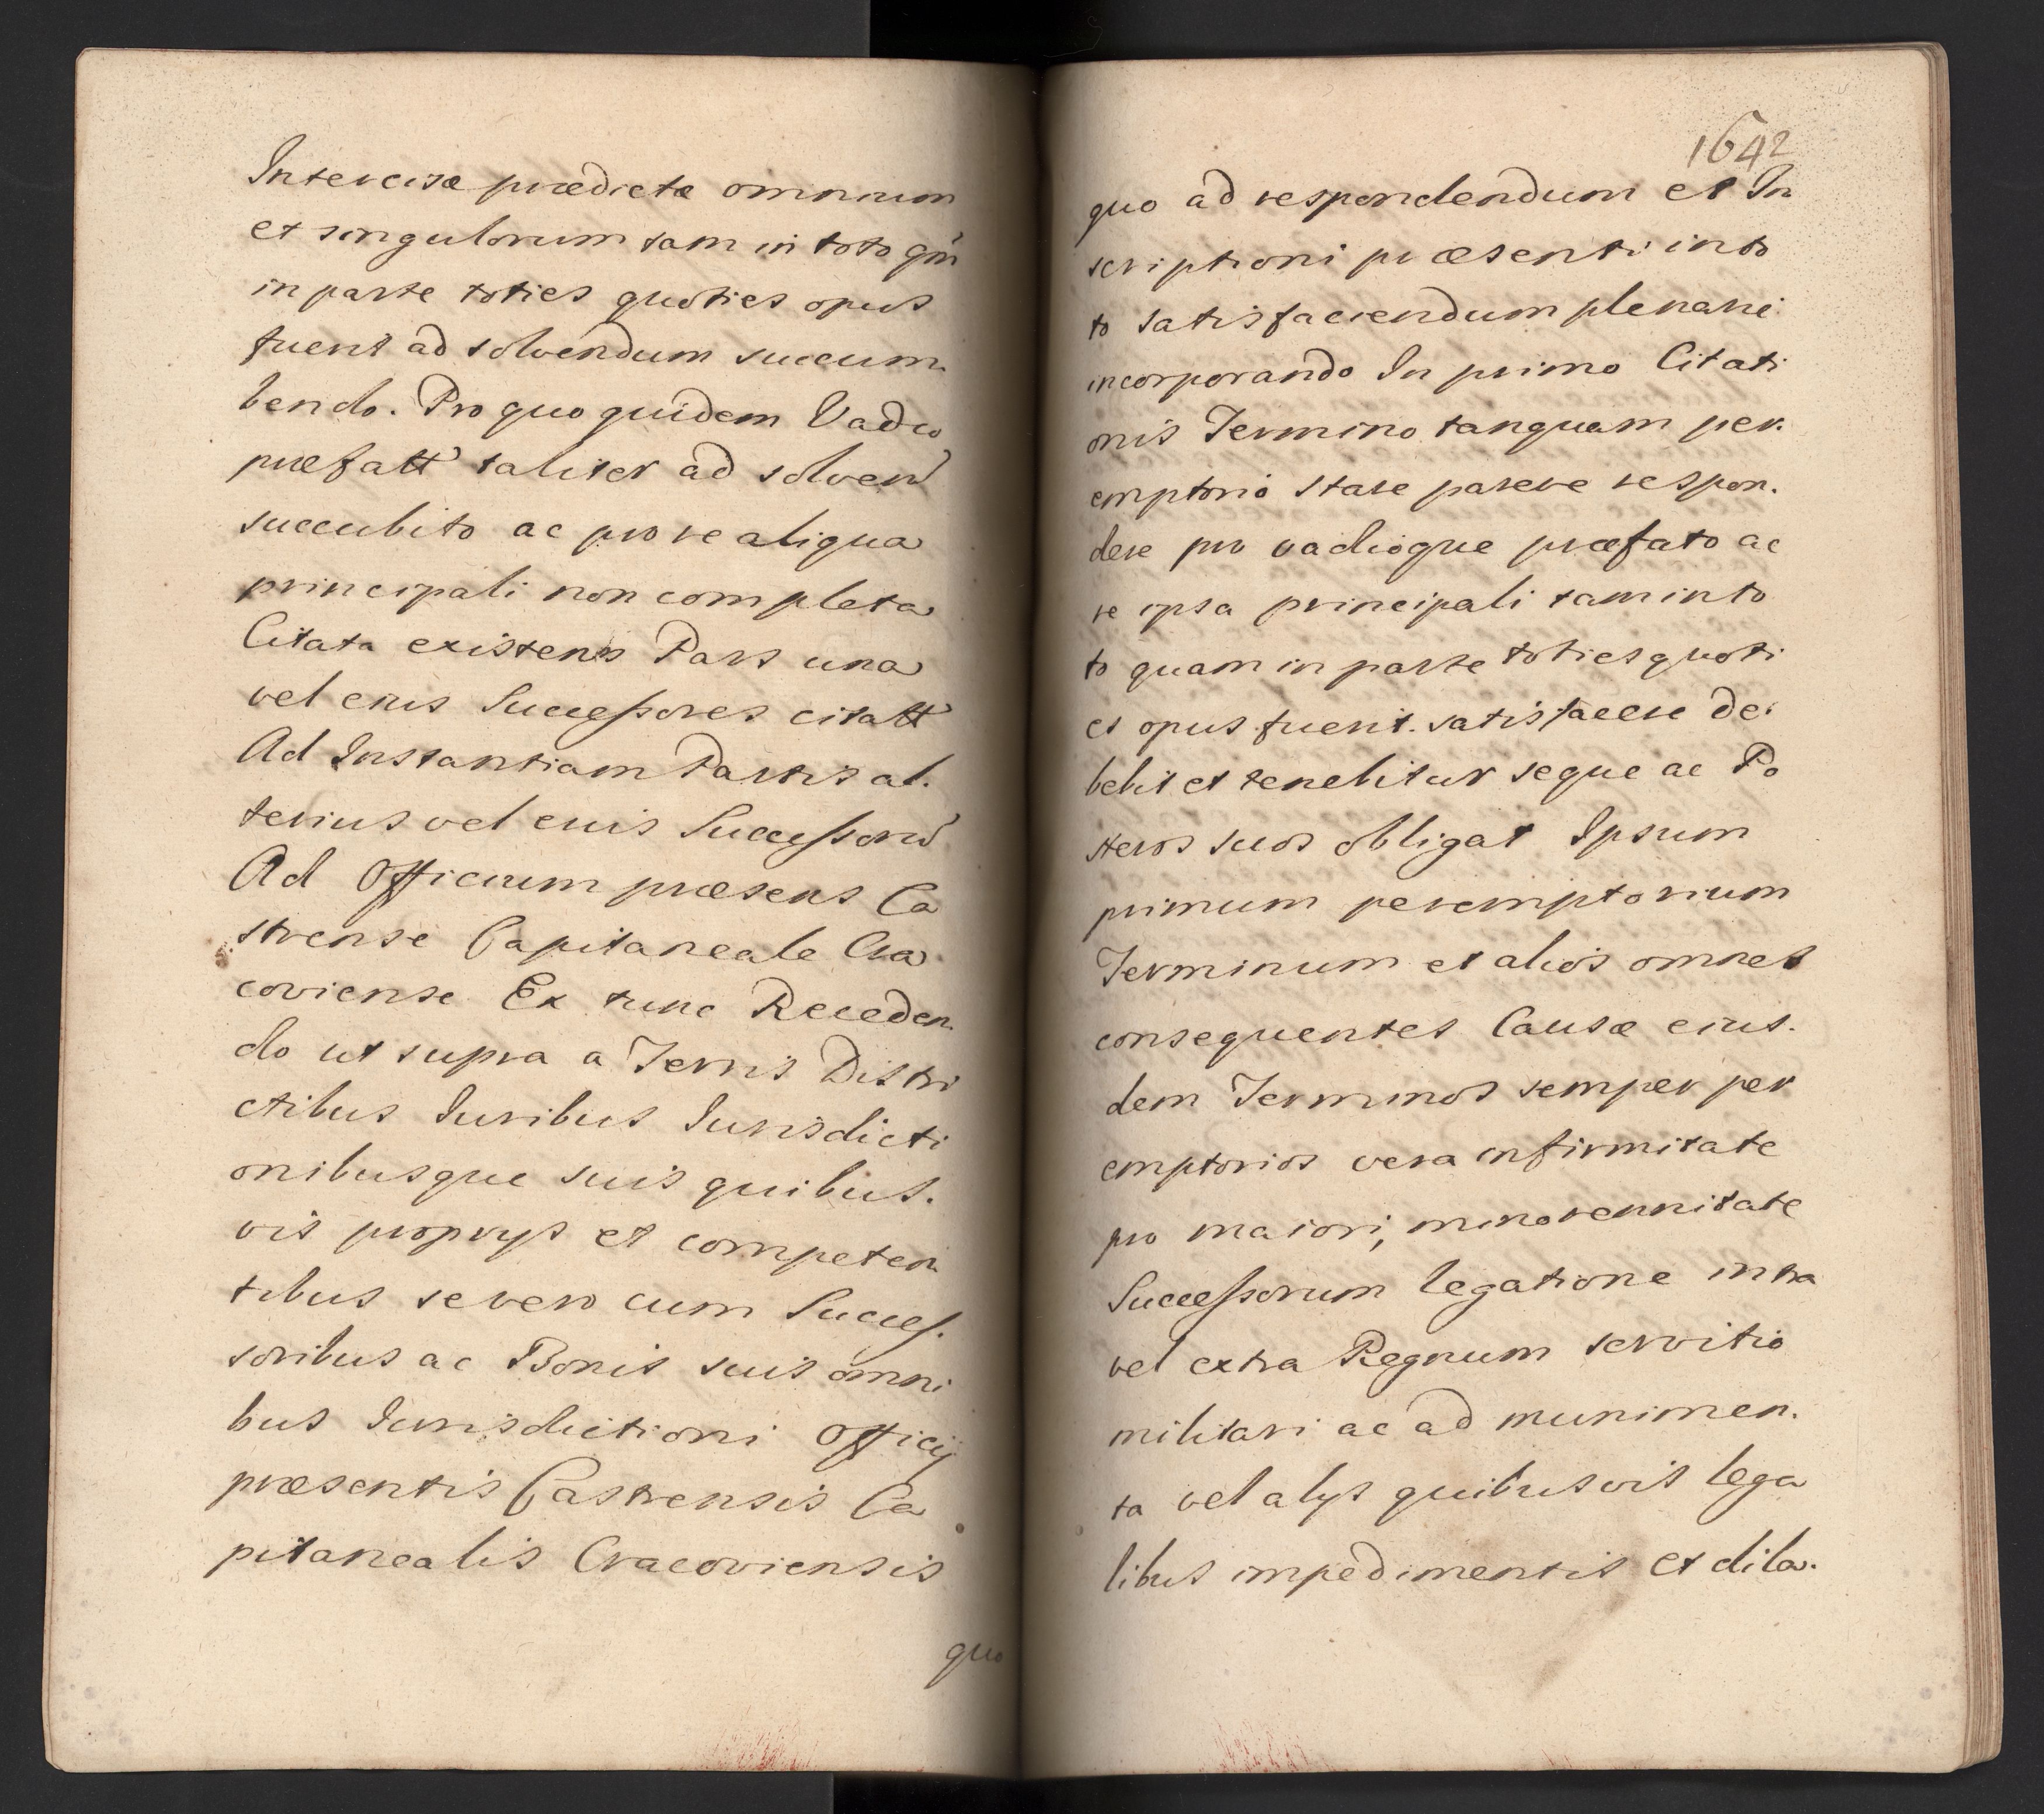 Intercisæ prædictæ omnium
et singulorum tam in toto qm
in parte toties quoties opus
fuerit ad solvendum succum.
bendo. Pro quo quidem Vadio
præfatt taliter ad solven
succubito ac pro re aliqua
principali non completa
Citata existens Pars una
vel eius Successores citatt
Ad Instantiam Partis al.
terius vel euis Successorū
Ad Officium præsens Ca
strense Capitaneale Cra
coviense Ex tunc Receden.
do ut supra a Terris Distri
ctibus Iuribus Iurisdicti
onibusque suis quibus.
vis proprys et competen
tibus se vero cum Succes.
soribus ac Bonis suis omni
bus Iurisdictioni Officij
præsentis Castrensis Ca
pitanealis Cracoviensis
quo
1642
quo ad respondendum et In
scriptioni præsenti in to
to satisfaciendum plenarie
incorporando In primo Citati
onis Termino tanquam per.
emptorio stare parere respon.
dere pro vadioque præfato ac
re ipsa principali tam in to
to quam in parte toties quoti
es opus fuerit. satisfacere de.
bebit et tenebitur seque ac Po
steros suos obligat Ipsum
primum peremptorium
Terminum et alios omnes
consequentes Causæ eius.
dem Terminos semper per
emptorios vera infirmitate
pro maiori, minorennitate
Successorum legatione intra
vel extra Regnum servitio
militari ac ad munimen.
ta vel alys quibusvis lega
libus impedimentis et dila.